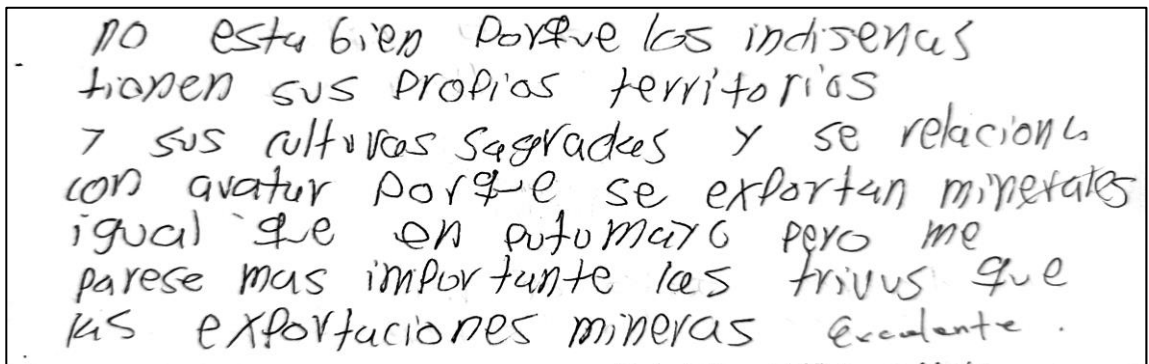 no esta bien Porque los indisenas
tienen sus propios territorios
y sus culturas sagradas y se relaciona
con avatar porque se exportan minerales
igual que en putumayo pero me
parese mas importante las trivus que
las exportaciones mineras Excelente.